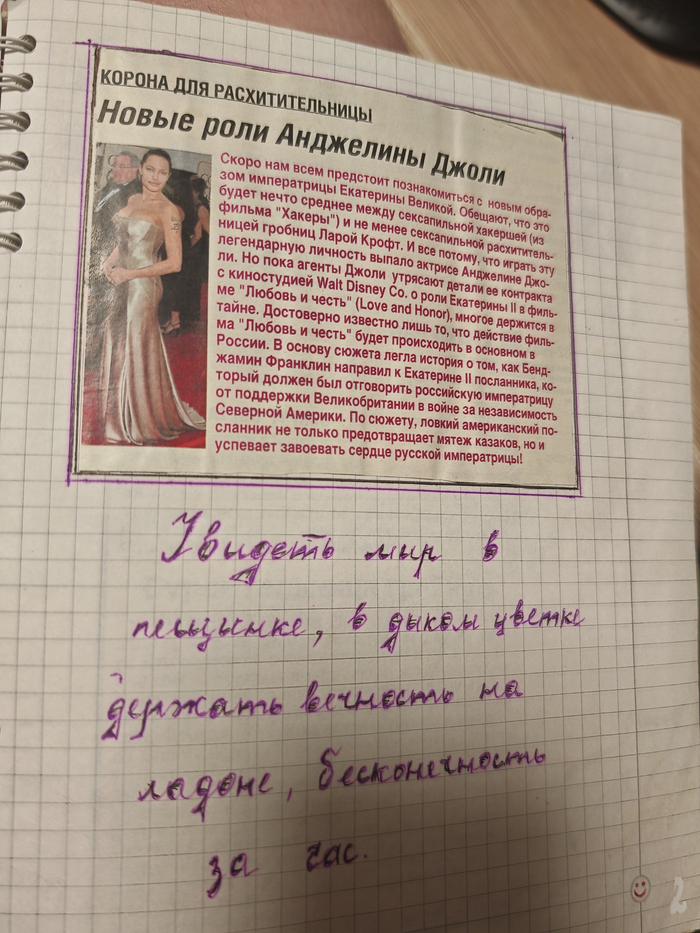 КОРОНА ДЛЯ РАСХИТИТЕЛЬНИЦЫ
Новые роли Анджелины Джоли
Скоро нам всем предстоит познакомиться с новым обра-
зом императрицы Екатерины Великой. Обещают, что это
будет нечто среднее между сексапильной хакершей (из
фильма "Хакеры") и не менее сексапильной расхититель-
ницей гробниц Ларой Крофт. И все потому, что играть эту
легендарную личность выпало актрисе Анджелине Джо-
ли. Но пока агенты Джоли утрясают детали ее контракта
с киностудией Walt Disney Co. о роли Екатерины II в филь-
ме "Любовь и честь" (Love and Honor), многое держится в
тайне. Достоверно известно лишь то, что действие филь-
ма "Любовь и честь" будет происходить в основном в
России. В основу сюжета легла история о том, как Бенд-
жамин Франклин направил к Екатерине II посланника, ко-
торый должен был отговорить российскую императрицу
от поддержки Великобритании в войне за независимость
Северной Америки. По сюжету, ловкий американский по-
сланник не только предотвращает мятеж казаков, но и
успевает завоевать сердце русской императрицы!
Увидеть мир в
песчинке, в диком цветке
держать вечность на
ладоне, бесконечность
за час.
2